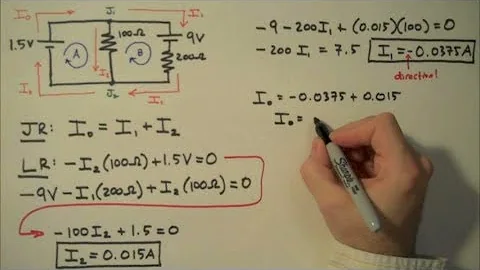 I₀ J₁ I₁
1.5V A I₂ 100Ω B 9V
200Ω
I₀ J₂ I₁
JR: I₀ = I₁ + I₂
LR: -I₂(100Ω) + 1.5V = 0
-9V - I₁(200Ω) + I₂(100Ω) = 0
-100I₂ + 1.5 = 0
I₂ = 0.015A
-9 - 200I₁ + (0.015)(100) = 0
-200I₁ = 7.5 I₁ = -0.0375A
direction!
I₀ = -0.0375 + 0.015
I₀ =
Sharpie